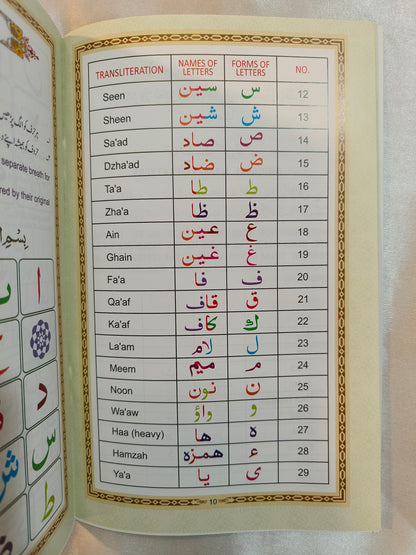 TRANSLITERATION NAMES OF LETTERS FORMS OF LETTERS NO.
Seen سین س 12
Sheen شین ش 13
Sa'ad صاد ص 14
Dzha'ad ضاد ض 15
Ta'a طا ط 16
Zha'a ظا ظ 17
Ain عین ع 18
Ghain غین غ 19
Fa'a فا ف 20
Qa'af قاف ق 21
Ka'af کاف ك 22
La'am لام ل 23
Meem میم م 24
Noon نون ن 25
Wa'aw واؤ و 26
Haa (heavy) ھا ہ 27
Hamzah ھمزہ ء 28
Ya'a یا ی 29
10
separate breath for
red by their original
ا
د
س
ش
ط